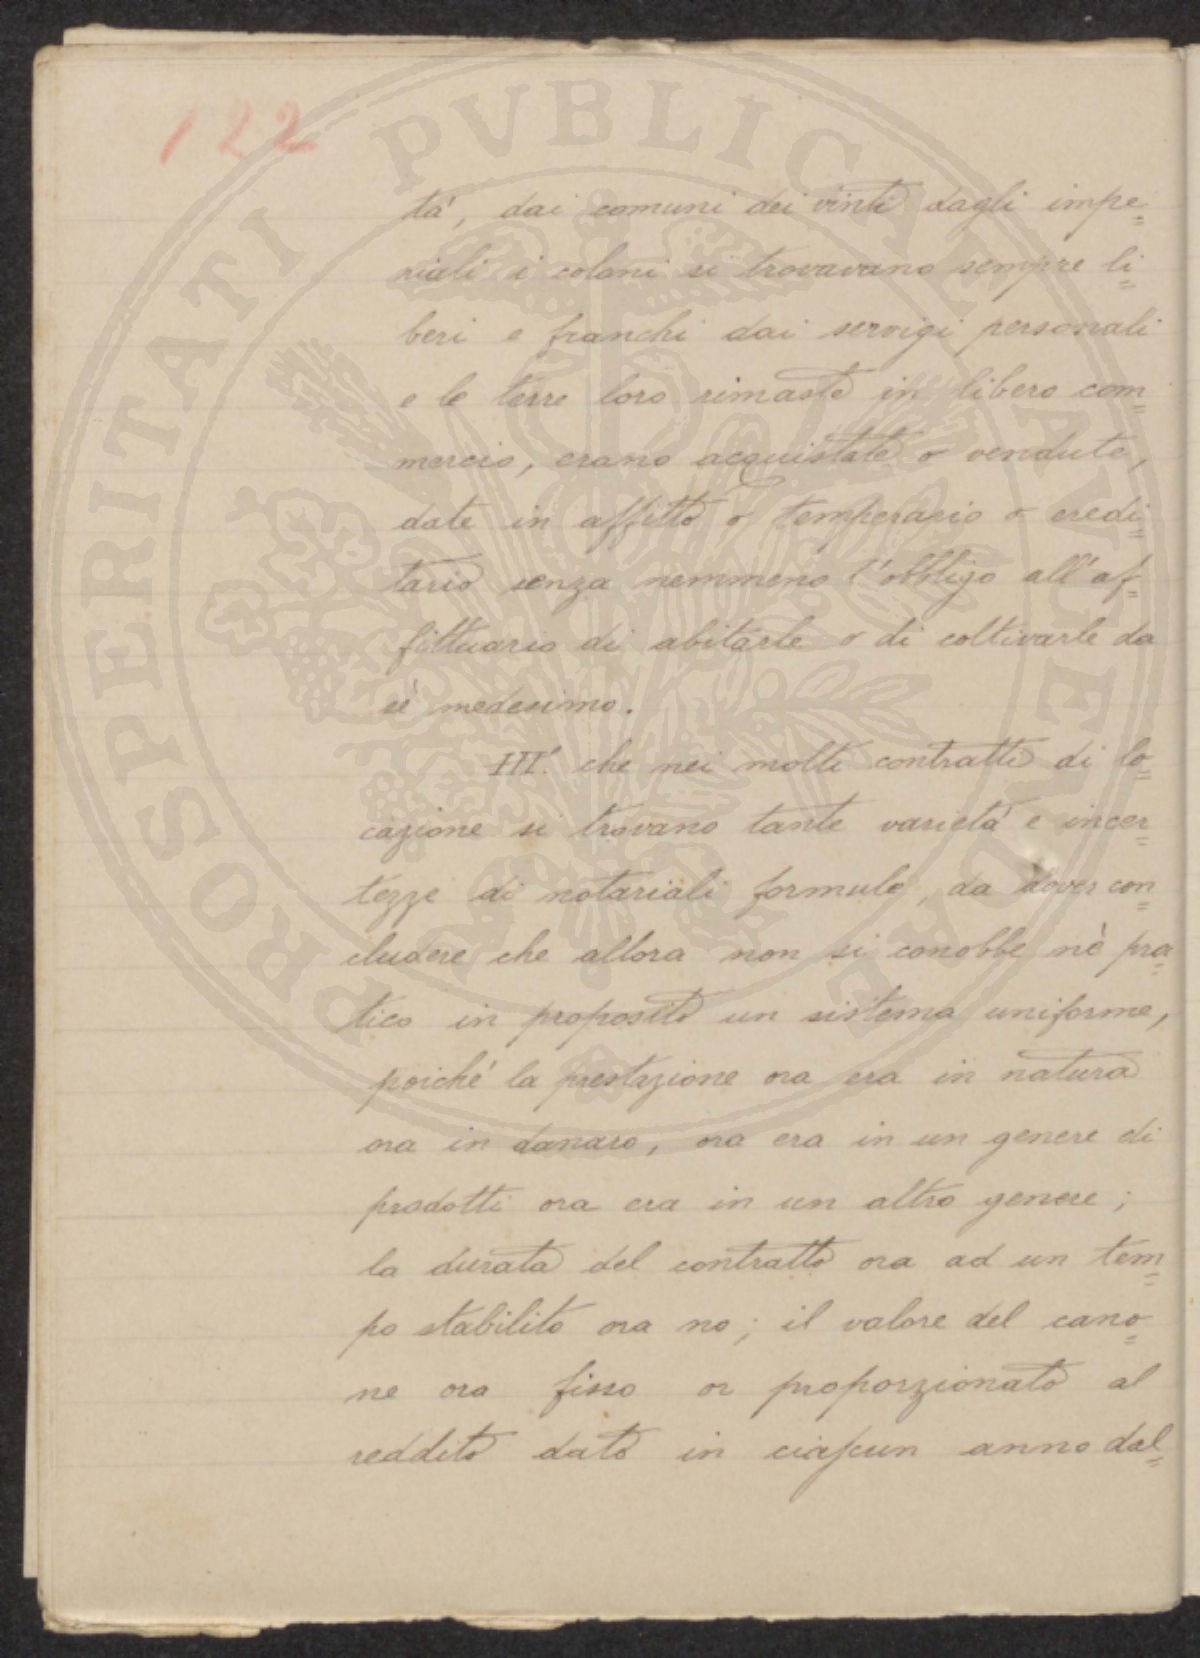 122
PROSPERITATI PVBLICAE AVGENDAE
tá, dai comuni dei vinti dagli impe=
riali i coloni si trovavano sempre li=
beri e franchi dai servigi personali
e le terre loro rimaste in libero com=
mercio, erano acquistate o vendute,
date in affitto o temperario o eredi=
tario senza nemmeno l'obbligo all'af=
fittuario di abitarle o di coltivarle da
sè medesimo.
III.° che nei molti contratti di lo=
cazione si trovano tante varietá e incer=
tezze di notariali formule, da dover con=
cludere che allora non si conobbe nè pra=
tico in proposito un sistema uniforme,
poiché la prestazione ora era in natura
ora in danaro, ora era in un genere di
prodotti ora era in un altro genere;
la durata del contratto ora ad un tem=
po stabilito ora no; il valore del cano=
ne ora fisso or proporzionato al
reddito dato in ciascun anno dal=